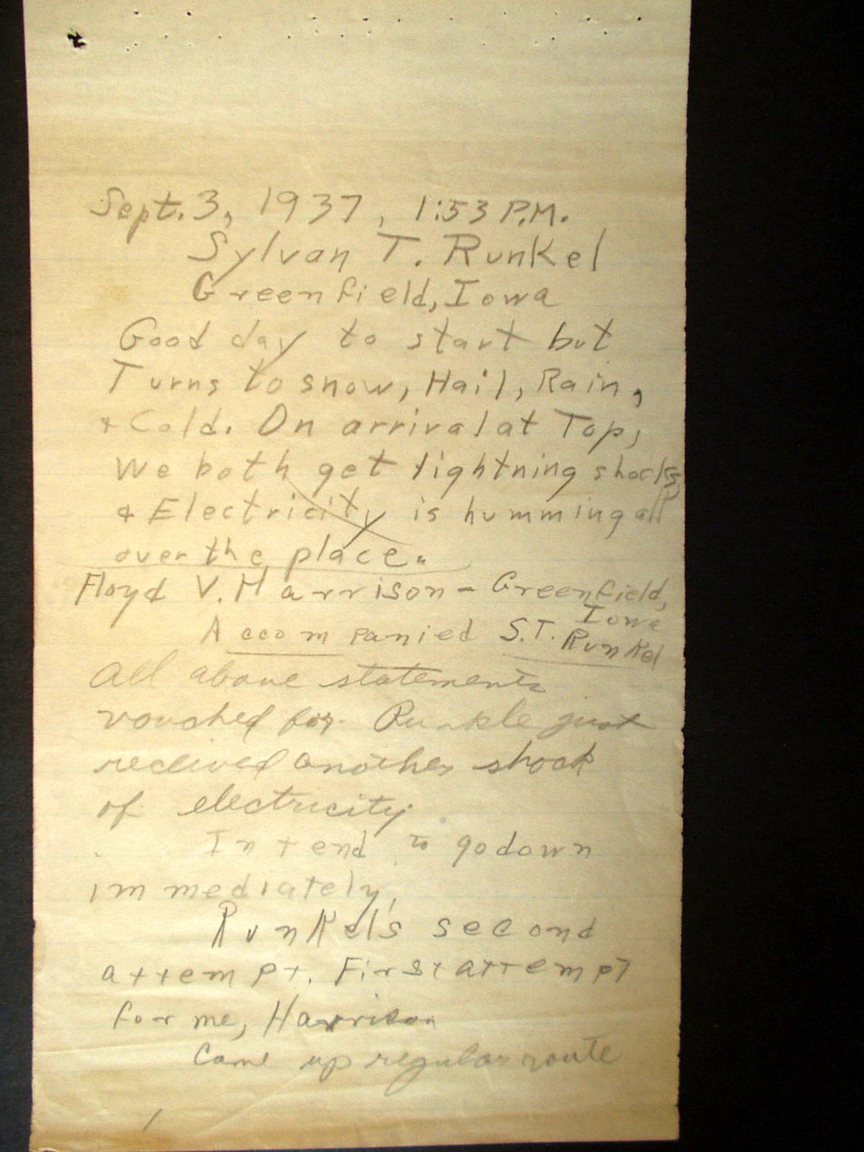 Sept. 3, 1937, 1:53 P.M.
Sylvan T. Runkel
Greenfield, Iowa
Good day to start but
Turns to snow, Hail, Rain,
+ Cold. On arrival at Top,
We both get lightning shocks
& Electricity is humming all
over the place.
Floyd V. Harrison - Greenfield,
Iowa
Accompanied S.T. Runkel
All above statements
vouched for. Runkle just
recieved another shock
of electricity.
Intend to go down
immediately,
Runkel's second
attempt. First attempt
for me, Harrison
Came up regular route